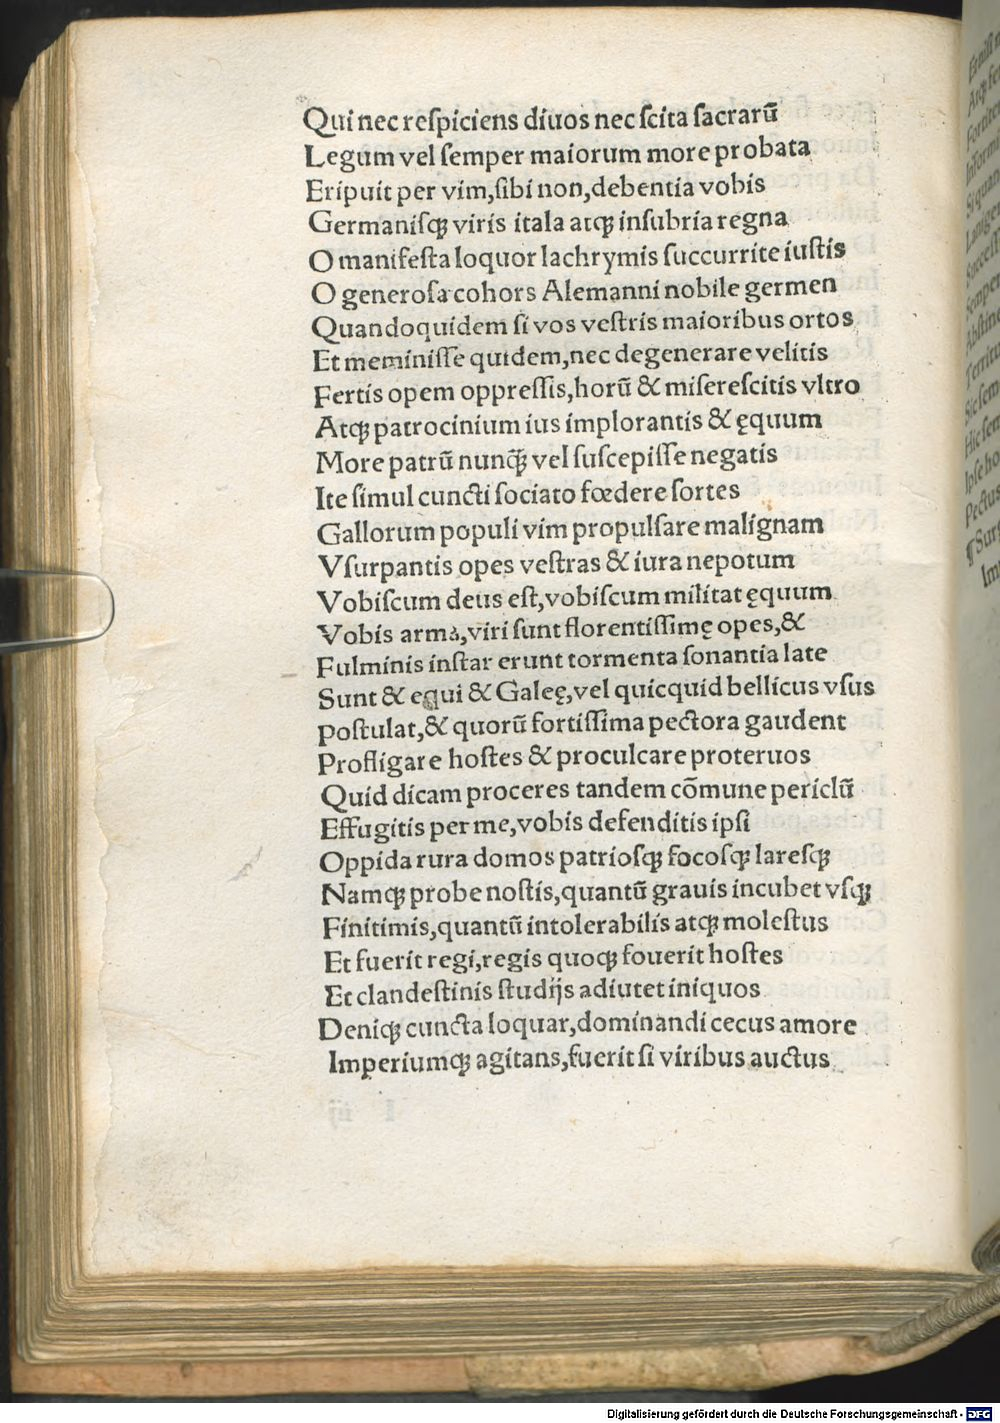 Qui nec reſpiciens diuos nec ſcita ſacrarū
Legum vel ſemper maiorum more probata
Eripuit per vim,ſibi non,debentia vobis
Germaniſqꝫ viris itala atqꝫ inſubria regna
O manifeſta loquor lachrymis ſuccurrite iuſtis
O generoſa cohors Alemanni nobile germen
Quandoquidem ſi vos veſtris maioribus ortos
Et meminiſſe quidem,nec degenerare velitis
Fertis opem oppreſſis,horū & miſereſcitis vltro
Atqꝫ patrocinium ius implorantis & ęquum
More patrū nunqꝫ̄ vel ſuscepiſſe negatis
Ite ſimul cuncti ſociato fœdere fortes
Gallorum populi vim propulſare malignam
Vſurpantis opes veſtras & iura nepotum
Vobiſcum deus eſt,vobiſcum militat ęquum
Vobis arma,viri ſunt florentiſſimę opes,&
Fulminis inſtar erunt tormenta ſonantia late
Sunt & equi & Galeę,vel quicquid bellicus vſus
poſtulat,& quorū fortiſſima pectora gaudent
Profligare hoſtes & proculcare proteruos
Quid dicam proceres tandem cōmune periclū
Effugitis per me,vobis defenditis ipſi
Oppida rura domos patrioſqꝫ focoſqꝫ lareſqꝫ
Namqꝫ probe noſtis,quantū grauis incubet vſqꝫ
Finitimis,quantū intolerabilis atqꝫ moleſtus
Et fuerit regi,regis quoqꝫ fouerit hoſtes
Et clandeſtinis ſtudijs adiutet iniquos
Deniqꝫ cuncta loquar,dominandi cecus amore
Imperiumqꝫ agitans,fuerit ſi viribus auctus
Digitalisierung gefördert durch die Deutsche Forschungsgemeinschaft - DFG